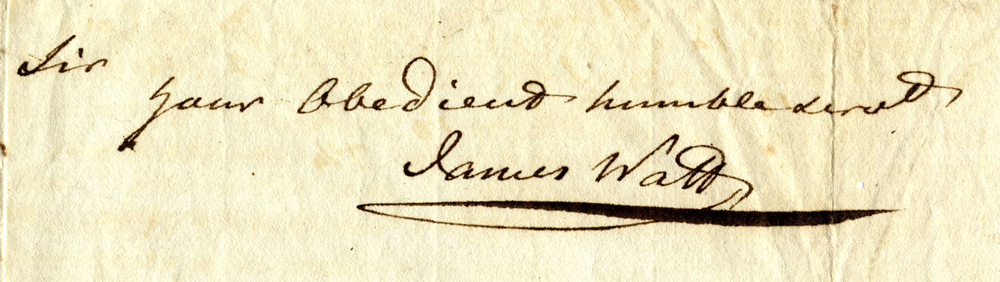 Sir
your Obedient humble servt
James Watt